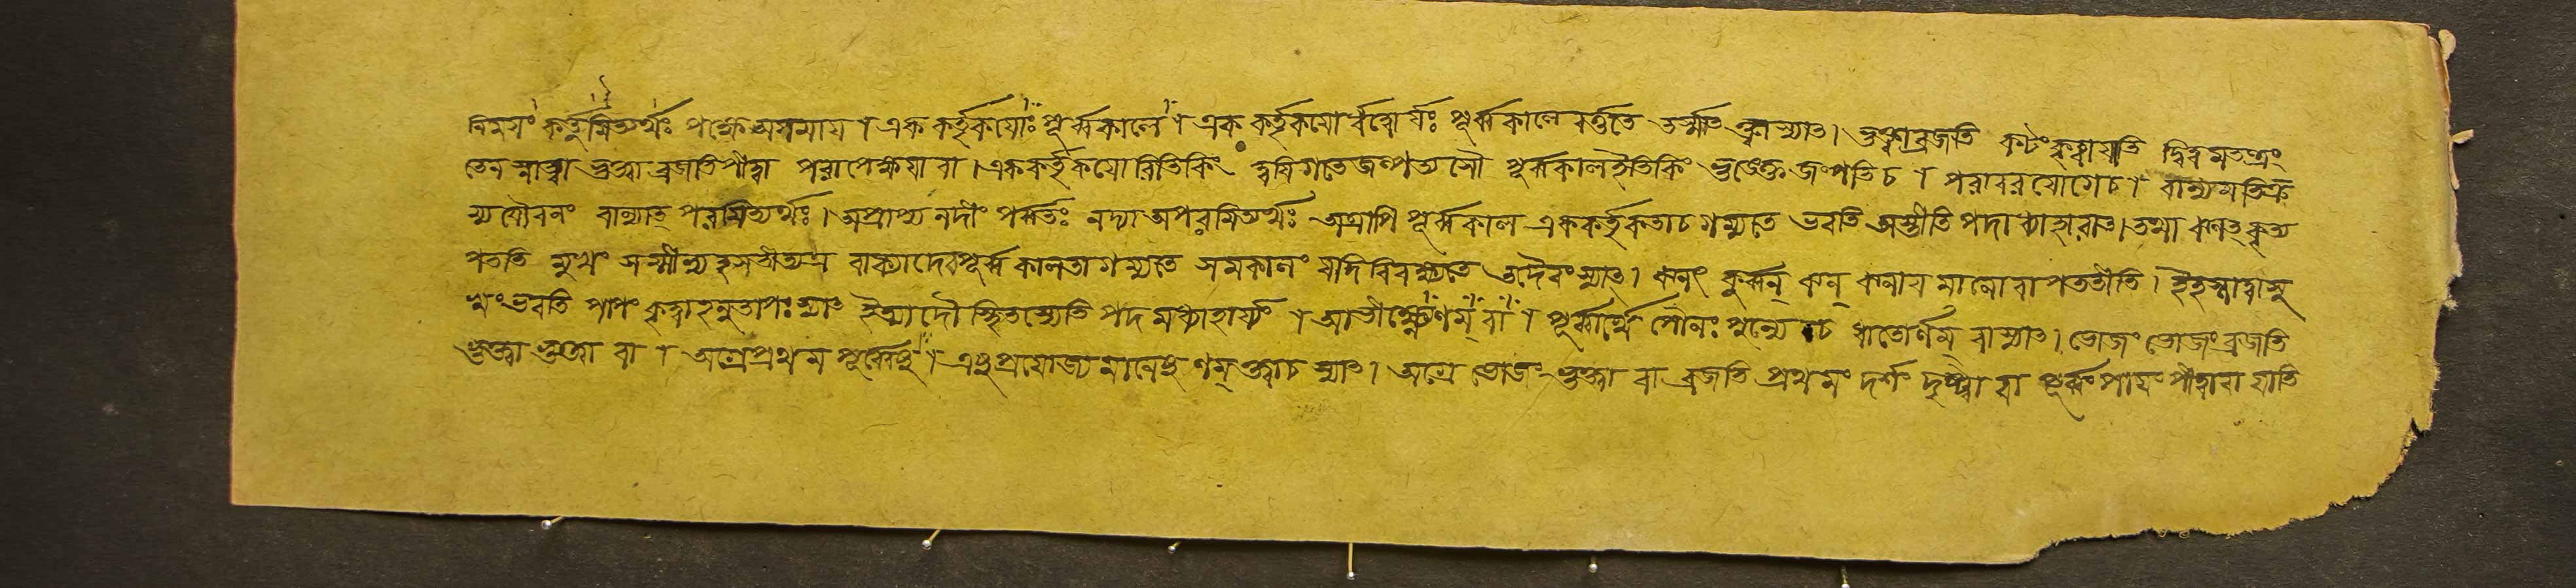 নিময়ং কর্ত্তুমিত্যর্থঃ পক্ষে অপমায় । এক কর্ত্তৃকয়োঃ পূর্ব্বকালে । এক কর্ত্তৃকয়োর্ধত্বোর্যঃ পূর্ব্বকালে বর্ত্ততে তস্মাৎ ক্ত্বা স্যাৎ । ভুক্ত্বা ব্রজতি কটং কৃত্বা যাতি দ্বিত্বমতন্ত্রং
তেন স্নাত্বা ভুক্ত্বা ব্রজতি পীত্বা পরাপেক্ষয়া বা । এককর্ত্তৃকয়োরিতি কিং ত্বয়ি গতে জল্পত্যসৌ পূর্ব্বকাল ইতি কিং ভুঙক্তে জল্পতি চ । পরাবরযোগে চ । বাল্যমতিক্র
ম্য যৌবনং বাল্যাত্ পরমিত্যর্থঃ । অপ্রাপ্য নদীং পর্ব্বতঃ নদ্যা অপরমিত্যর্থঃ অত্রাপি পূর্ব্বকাল এককর্ত্তৃকতা চ গম্যতে ভবতি অস্তীতি পদাধ্যাহারাৎ । তথা ঝণত্ কৃত্য
পততি মুখং সম্মীল্য হসতীত্যত্র বাক্যাদেব পূর্ব্বকালতা গম্যতে সমকালং যদি বিবক্ষ্যতে তদৈবং স্যাৎ । ঝণং কুর্ব্বন্ ঝণন্ ঝণায়মানো বা পততীতি । ইহ স্নাত্বা সু
খং ভবতি পাপং কৃত্বাহনুতাপঃ স্যাৎ ইত্যাদৌ স্থিতস্যেতি পদমধ্যাহার্য্যং । আভীক্ষ্ণ্যে ণম্ বা । পূর্ব্বার্থে পৌনঃপুন্যে চ ধাতোর্ণম্ বা স্যাৎ । ভোজং ভোজং ব্রজতি
ভুক্ত্বা ভুক্ত্বা বা । অগ্রেপ্রথম পূর্ব্বেষু । এষু প্রযোজ্যমানেষু ণম্ ক্ত্বা চ স্যাৎ । অগ্রে ভোজং ভুক্ত্বা বা ব্রজতি প্রথমং দর্শং দৃষ্ট্বা বা পূর্ব্বং পায়ং পীত্বা বা যাতি